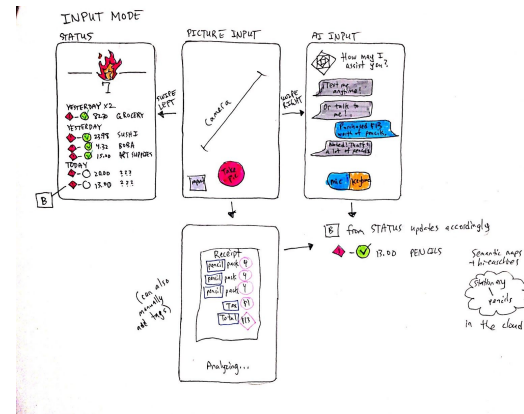 INPUT MODE
STATUS
7
YESTERDAY X2
82.20 GROCERY
YESTERDAY
23.98 SUSHI
4.32 BOBA
15.00 ART SUPPLIES
TODAY
20.00 ???
13.00 ???
B
SWIPE LEFT
PICTURE INPUT
Camera
input
Take pic
SWIPE RIGHT
AI INPUT
How may I assist you?
Text me anything!
Or talk to me!
Purchased $13 worth of pencils
Noted! That's a lot of pencils
MIC
keyboard
(can also manually add tags)
Receipt
pencil pack 4
pencil pack 4
pencil pack 4
Tax $1
Total $13
Analyzing...
B from STATUS updates accordingly
13.00 PENCILS
Semantic maps + hierarchies
Stationery
pencils
in the cloud